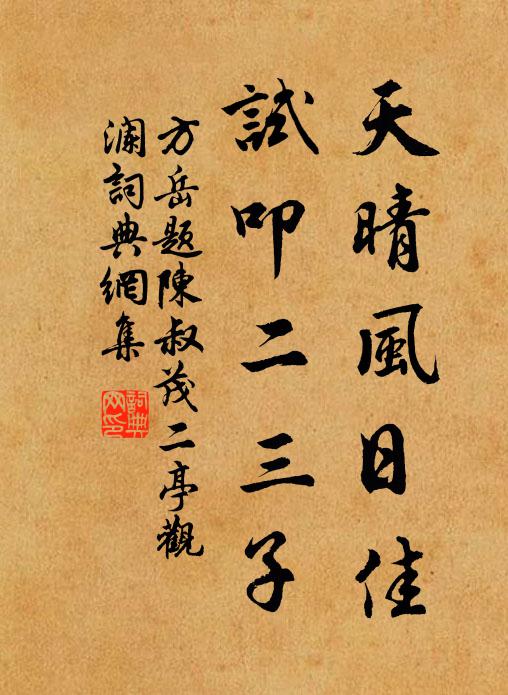 天晴風日佳
試叩二三子
方岳題陳叔茂二亭觀
瀾詞典網集
詞典
网印